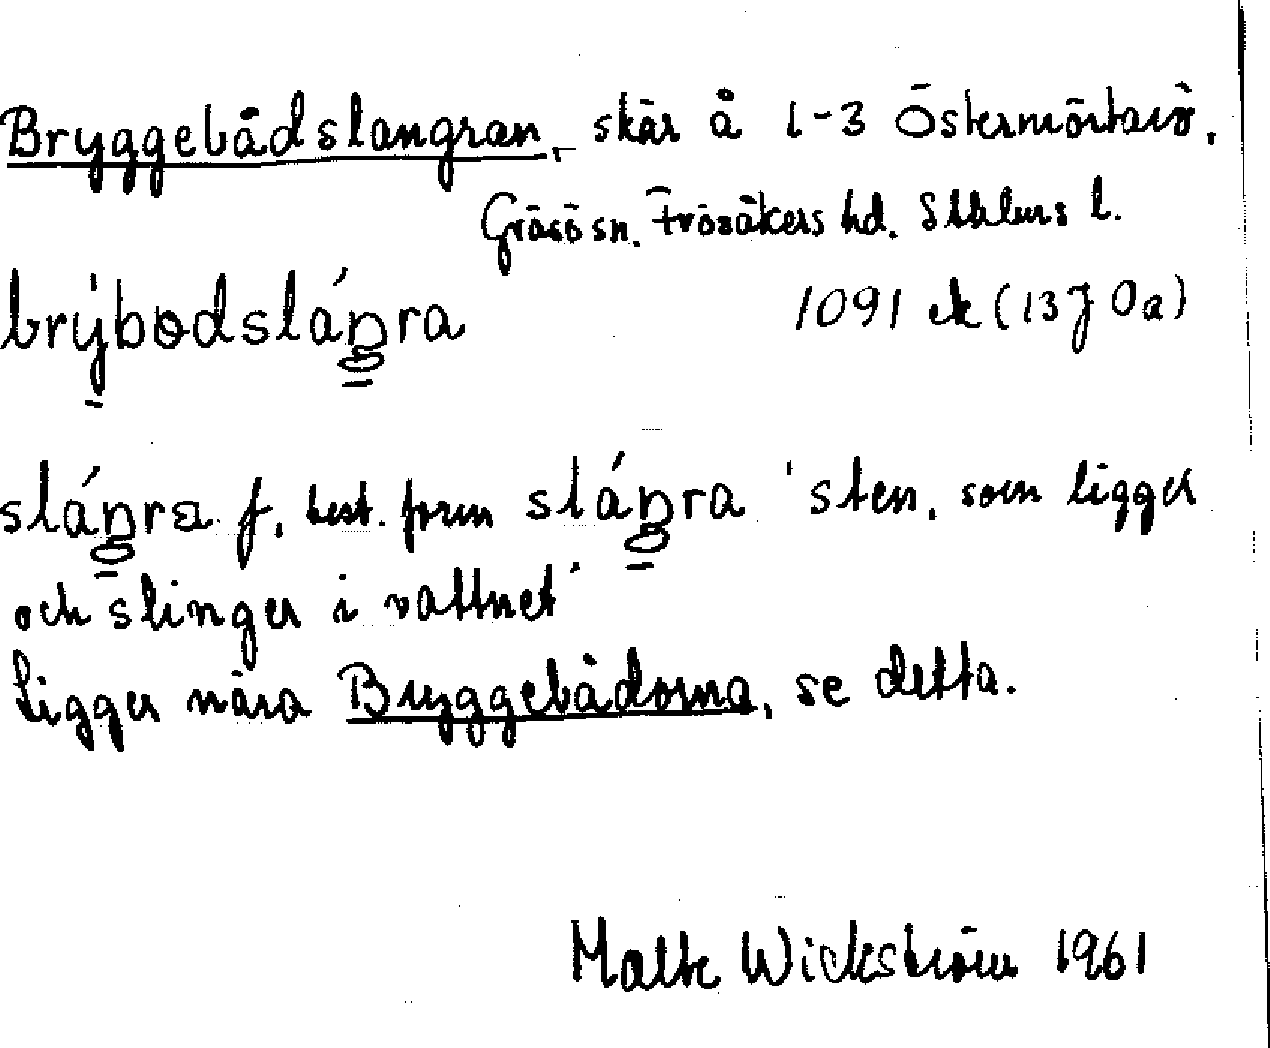 Bryggebådslangran, skär å 1-3 Östermörtarö,
Gräsö sn. Frösåkers hd. Sthlms l.
brýbodsláŋra 1091 ek (13J 0a)
sláŋra f, best. form sláŋra 'sten, som ligger
och slinger i vattnet'
Ligger nära Bryggebådorna, se detta.
Malte Wickström 1961